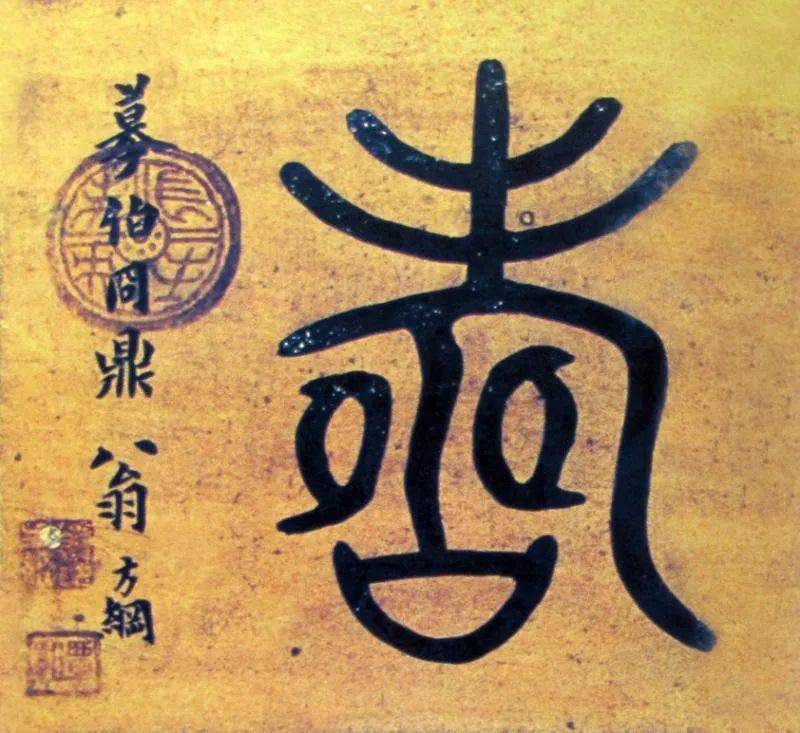 壽
摹伯冏鼎翁方綱
長生未央